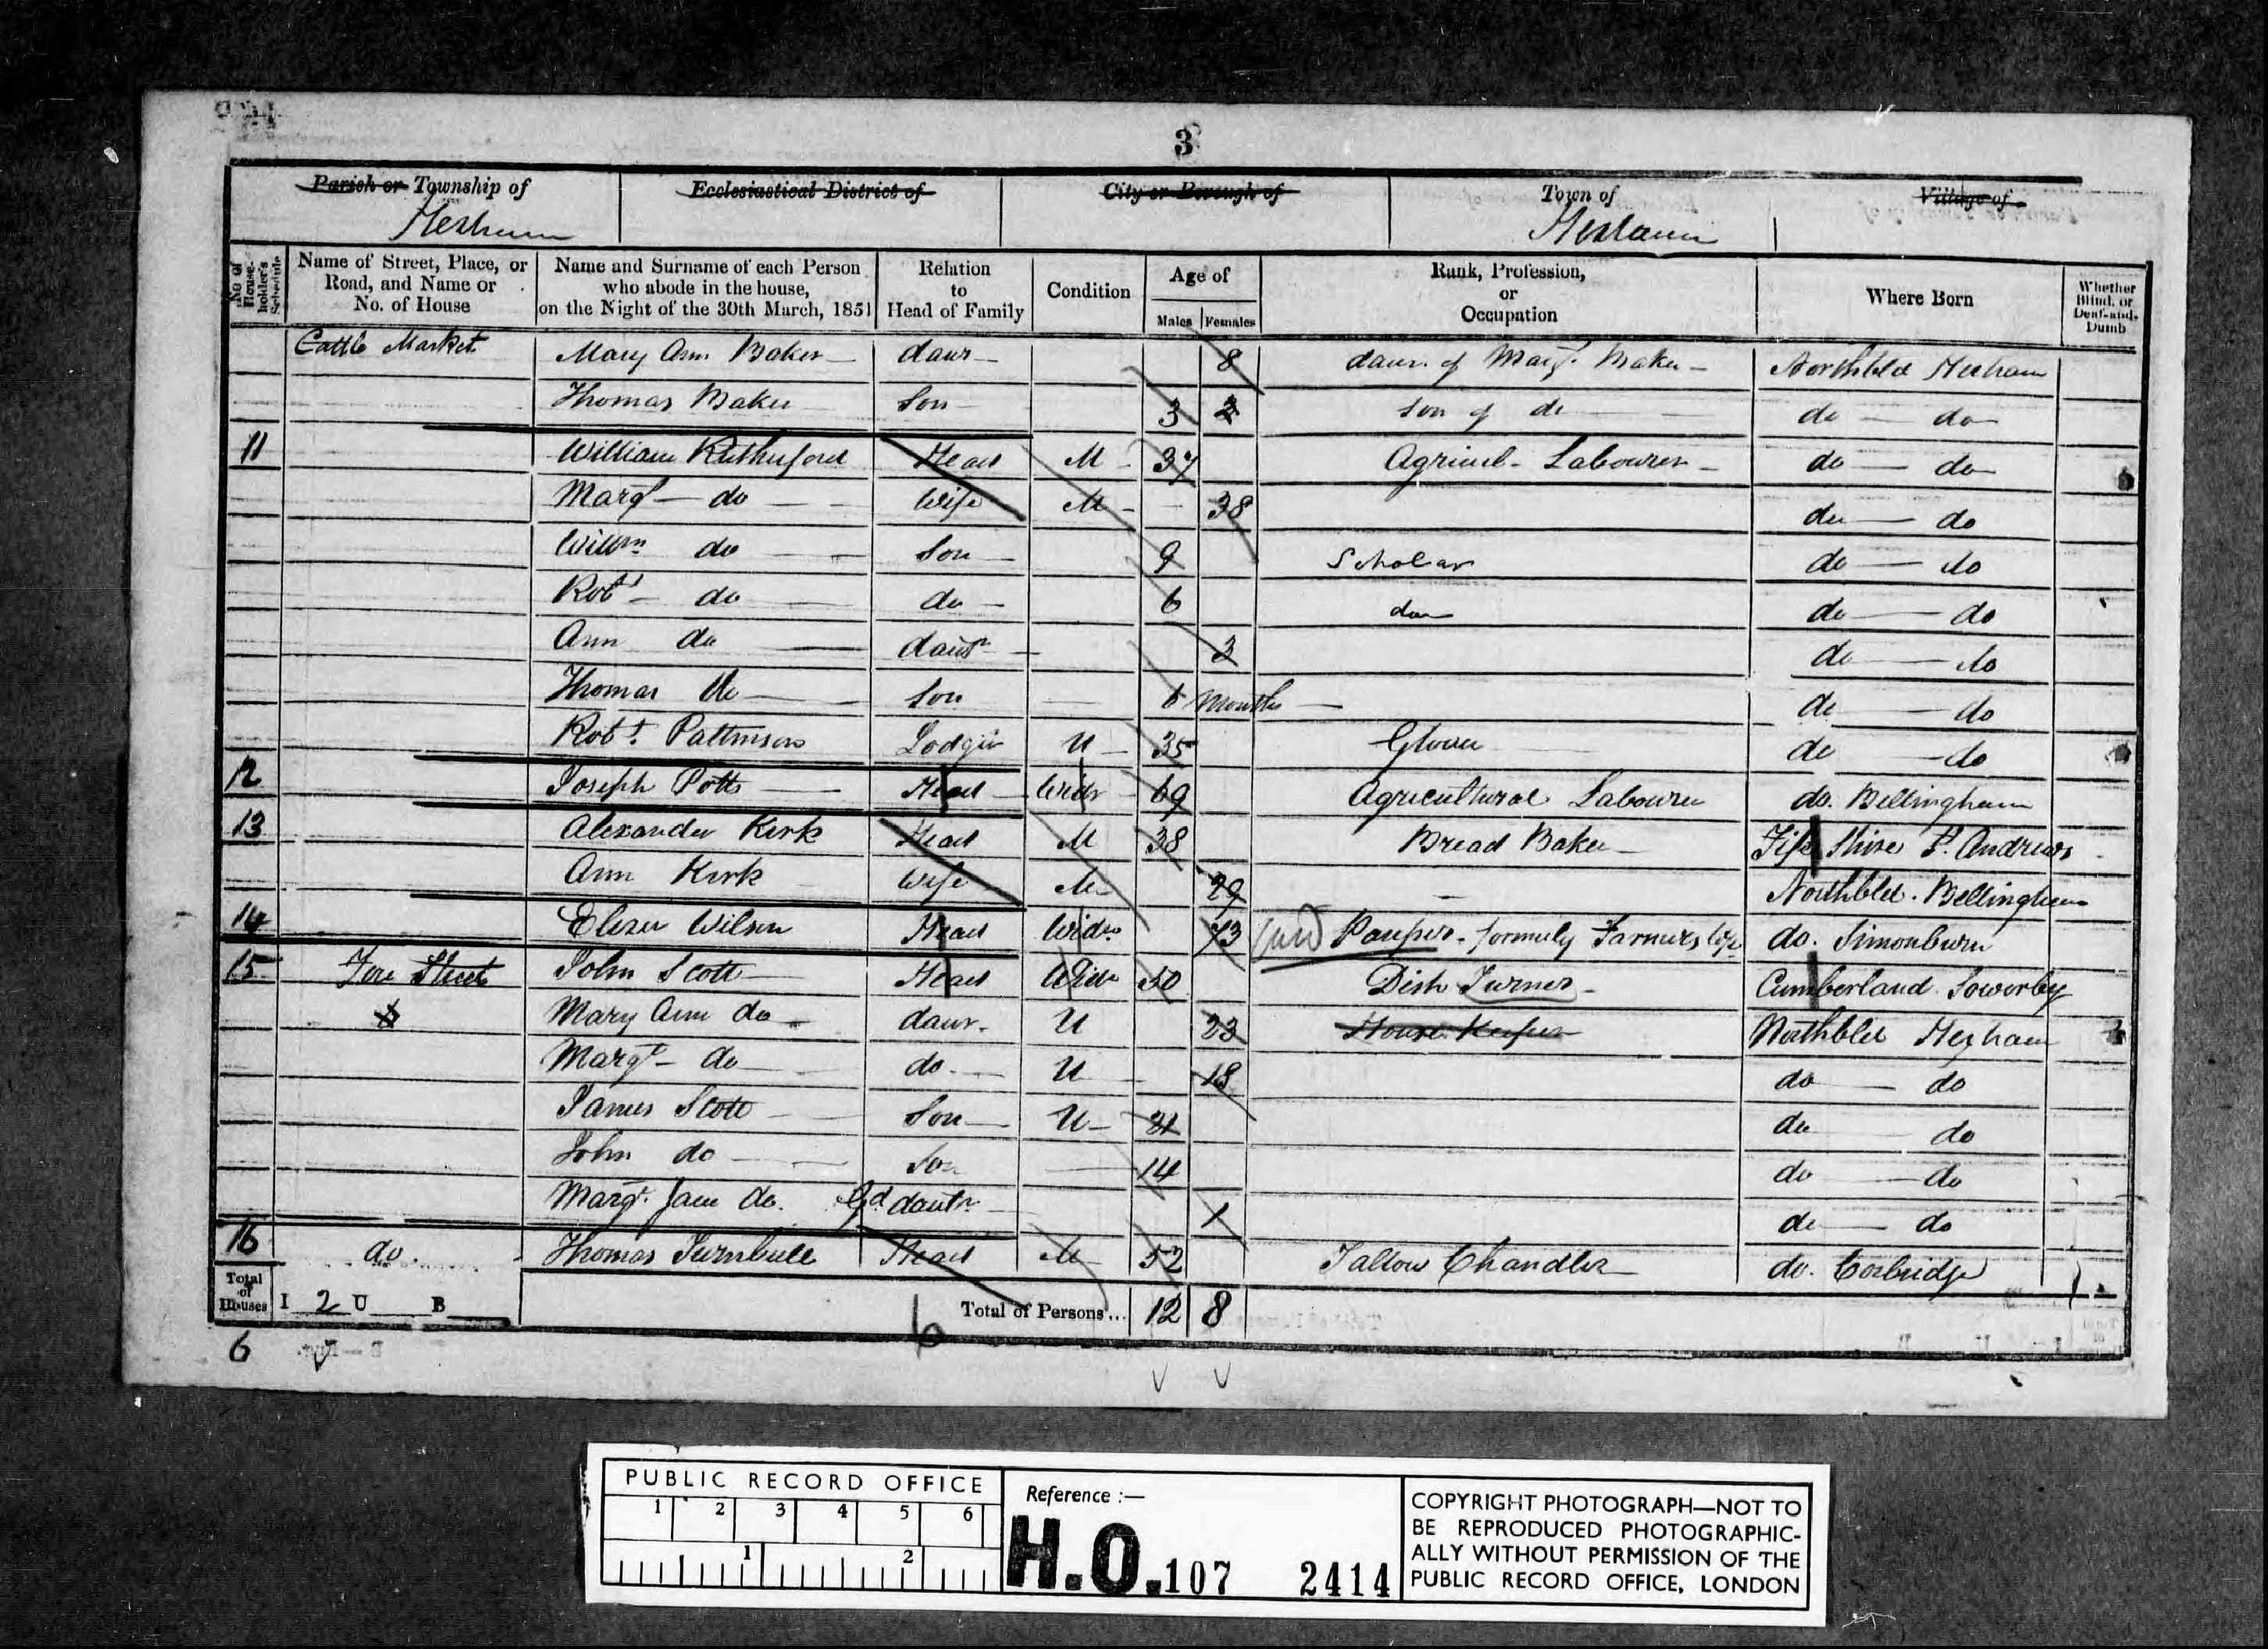 3
Parish or Township of Ecclesiastical District of City or Borough of Town of Village of
Hexham Hexham
No. of House-holder's Schedule
Name of Street, Place, or Road, and Name or No. of House
Name and Surname of each Person who abode in the house, on the Night of the 30th March, 1851
Relation to Head of Family
Condition
Age of
Males Females
Rank, Profession, or Occupation
Where Born
Whether Blind, or Deaf-and-Dumb
Cattle Market Mary Ann Baker daur 8 daur. of Margt. Baker Northbld Hexham
Thomas Baker Son 3 2 Son of do do do
11 William Rutherford Head M 37 Agricul- Labourer do do
Margt do Wife M 38 do do
Willm do Son 9 Scholar do do
Robt do do 6 do do do
Ann do daur 3 do do
Thomas do Son 6 Months do do
Robt. Pattinson Lodger U 35 Glover do do
12 Joseph Potts Head Widr 69 Agricultural Labourer do. Bellingham
13 Alexander Kirk Head M 38 Bread Baker Fife Shire St. Andrews
Ann Kirk Wife M 29 Northbld. Bellingham
14 Elizer Wilson Head Widw 73 Pauper - formerly Farmers Wife do. Simonburn
15 Fore Street John Scott Head Widr 50 Dish Turner Cumberland Sowerby
Mary Ann do daur. U 23 House Keeper Northbld Hexham
Margt do do U 18 do do
James Scott Son U 21 do do
John do Son 14 do do
Margt. Jane do. Gd dautr 1 do do
16 do. Thomas Turnbull Head M 52 Tallow Chandler do. Corbridge
Total of Houses I 2 U B Total of Persons... 12 8
6
6
PUBLIC RECORD OFFICE
1 2 3 4 5 6
1 2
Reference :—
H.O. 107 2414
COPYRIGHT PHOTOGRAPH—NOT TO
BE REPRODUCED PHOTOGRAPHIC-
ALLY WITHOUT PERMISSION OF THE
PUBLIC RECORD OFFICE, LONDON